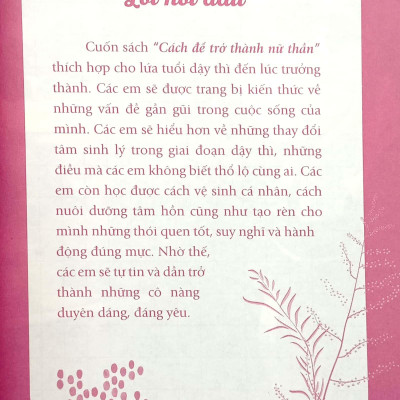 Lời nói đầu
Cuốn sách "Cách để trở thành nữ thần"
thích hợp cho lứa tuổi dậy thì đến lúc trưởng
thành. Các em sẽ được trang bị kiến thức về
những vấn đề gần gũi trong cuộc sống của
mình. Các em sẽ hiểu hơn về những thay đổi
tâm sinh lý trong giai đoạn dậy thì, những
điều mà các em không biết thổ lộ cùng ai. Các
em còn học được cách vệ sinh cá nhân, cách
nuôi dưỡng tâm hồn cũng như tạo rèn cho
mình những thói quen tốt, suy nghĩ và hành
động đúng mực. Nhờ thế,
các em sẽ tự tin và dần trở
thành những cô nàng
duyên dáng, đáng yêu.